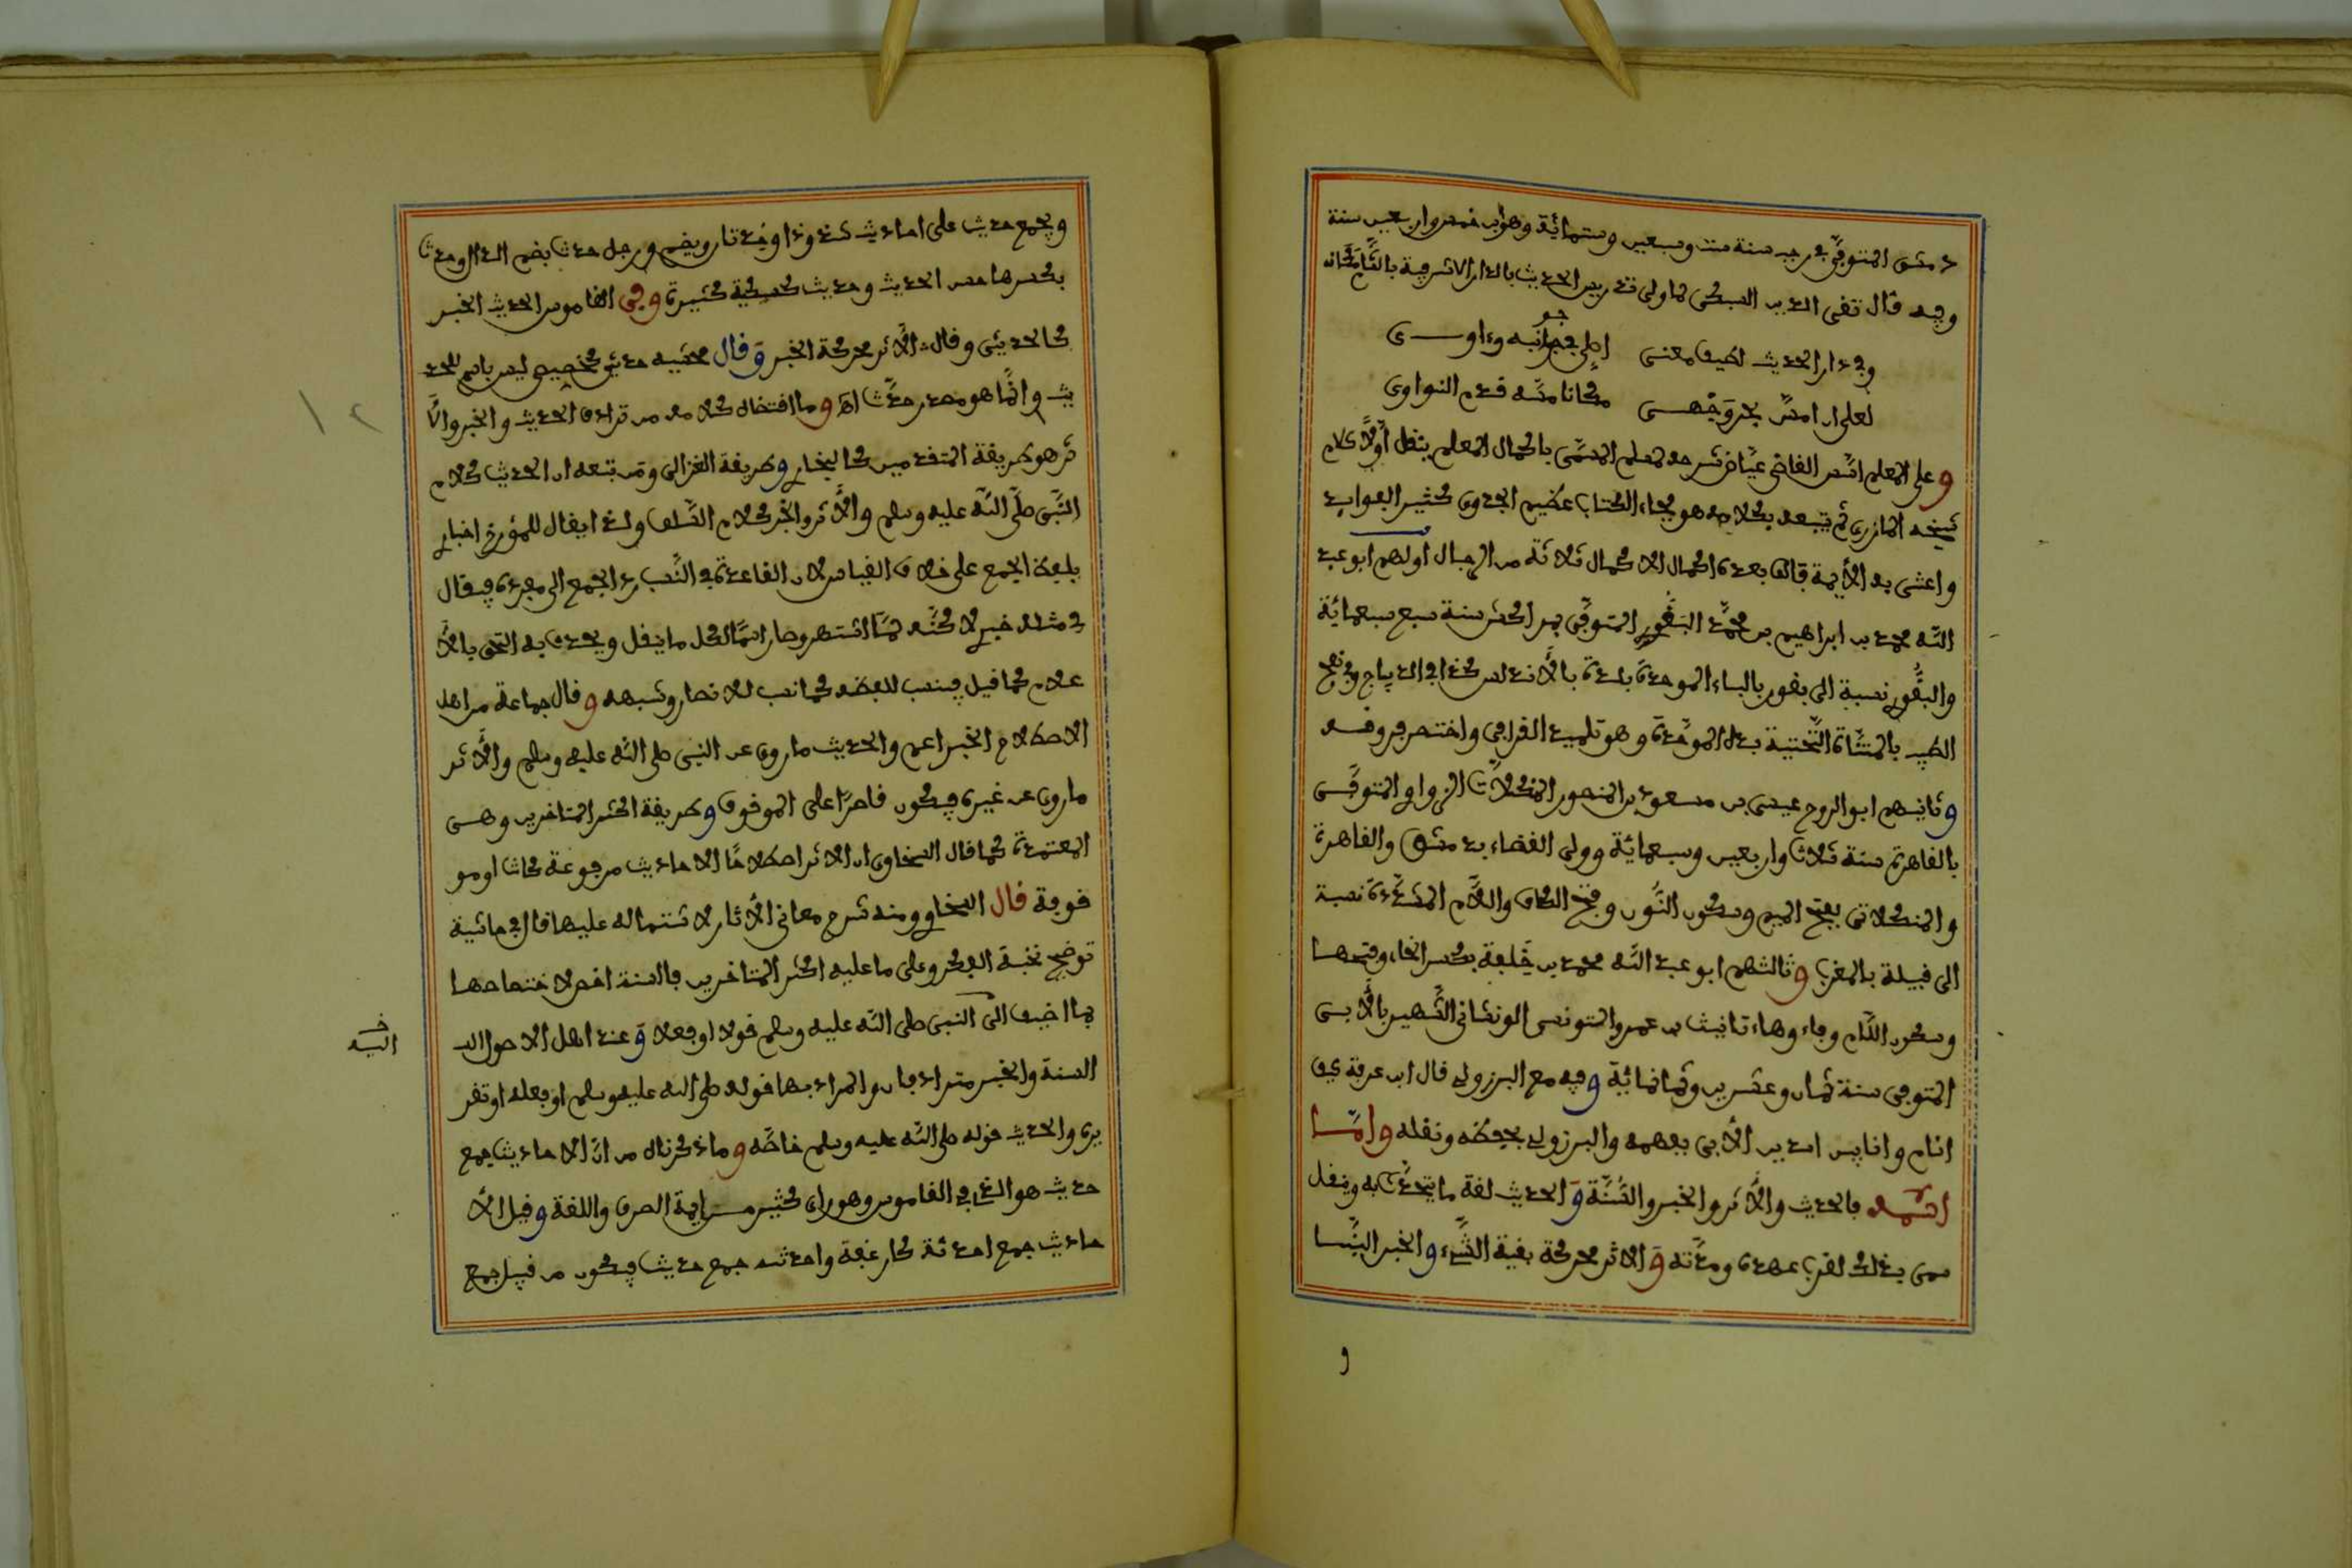 دمشق المتوفى في رجب سنة ست وسبعين وستمائة وهو ابن خمس واربعين سنة
وفيه قال تقي الدين السبكي لما ولي تدريس الحديث بالدار الاشرفية بالشام مكانه
وفي دار الحديث لطيف معنى اصلي في جوانبه وءاوى
لعلي ان امس بحر وجهي مكانا مسه قدم النواوي
وعلى المعلم اسس القاضي عياض شرحه لمسلم المسمى باكمال المعلم ينقل أولا كلام
شيخه المازري ثم يتبعه بكلامه هو فجاء الكتاب عظيم الجدوى كثير الفوايد
واعتنى به الأيمة فالف بعده اكمال الاكمال ثلاثة من الرجال اولهم ابو عبد
الله محمد بن ابراهيم بن محمد البقوري المتوفى بمراكش سنة سبع سبعمائة
والبقوري نسبة الى بقور بالباء الموحدة بلدة بالأندلس كذا في الديباج وفي نفح
الطيب بالمثناة التحتية بدل الموحدة وهو تلميذ القرافي واختصر فروقه
وثانيهم ابو الروح عيسى بن مسعود بن المنصور المنكلاتي الزواوي المتوفى
بالقاهرة سنة ثلاث واربعين وسبعمائة وولي القضاء بدمشق والقاهرة
والمنكلاتي بفتح الميم وسكون النون وفتح الكاف واللام المشددة نسبة
الى قبيلة بالمغرب وثالثهم ابو عبد الله محمد بن خلفة بكسر الخاء وفتحها
وسكون اللام وفاء وهاء تانيث بن عمر التونسي الوشتاني الشهير بالأبي
المتوفى سنة ثمان وعشرين وثمانمائة وفيه مع البرزولي قال ابن عرفة كيف
انام وانا بين اسدين الأبي بفهمه والبرزولي بحفظه ونقله وامـا
اسمه فالحديث والأثر والخبر والسنة والحديث لغة ما يتحدث به وينقل
سمي بذلك لقرب عهده وحدثه والاثر محركة بقية الشيء والخبر النبـا
و
ويجمع حديث على احاديث شذوذا وفد تارويضم ورجل حدث بضم الدال وحدث
بكسرها حسن الحديث وحديث كسكيت كثيره وفي القاموس الحديث الخبر
كالحديثى وقال الأثر محركة الخبر وقال محشيه حديثى كخصيصى ليس باسم للحد
يث وانما هو مصدر حدث اهـ وما اقتضاه كلامه من ترادف الحديث والخبر والأ
ثر هو طريقة المتقدمين كالبخاري وطريقة الغزالي ومن تبعه ان الحديث كلام
النبي صلى الله عليه وسلم والأثر والخبر كلام السلف ولذا يقال للمؤرخ اخباري
بلفظ الجمع على خلاف القياس لان القاعدة في النسب رد الجمع الى مفرده فيقال
في مثله خبري لا كنه لما اشتهر وصار اسما لكل ما ينقل ويحدث به التحق بالأ
علام كما قيل فينسب للفظه كما نسب للانصار وشبهه وقال جماعة من اهل
الاصطلاح الخبر اعم والحديث ما روي عن النبي صلى الله عليه وسلم والأثر
ما روي عن غيره فيكون قاصرا على الموقوف وطريقة اكثر المتاخرين وهي
المعتمدة كما قال السخاوي ان الاثر اصطلاحا الاحاديث مرفوعة كانت او مو
قوفة قال السخاوي ومنه شرح معاني الأثار لاشتماله عليها قال في حاشية
توضيح نخبة الفكر وعلى ما عليه اكثر المتاخرين فالسنة اخص لاختصاصها
بما اضيف الى النبي صلى الله عليه وسلم قولا او فعلا وعند اهل الاصول ان
السنة والخبر مترادفان والمراد بها قوله صلى الله عليه وسلم او فعله او تقر
يره والحديث قوله صلى الله عليه وسلم خاصه وما ذكرناه من ان الاحاديث جمع
حديث هو الذي في القاموس وهو راي كثير من ايمة الصرف واللغة وقيل الأ
حاديث جمع احدثة كارغفة واحدثه جمع حديث فيكون من قبيل جمع